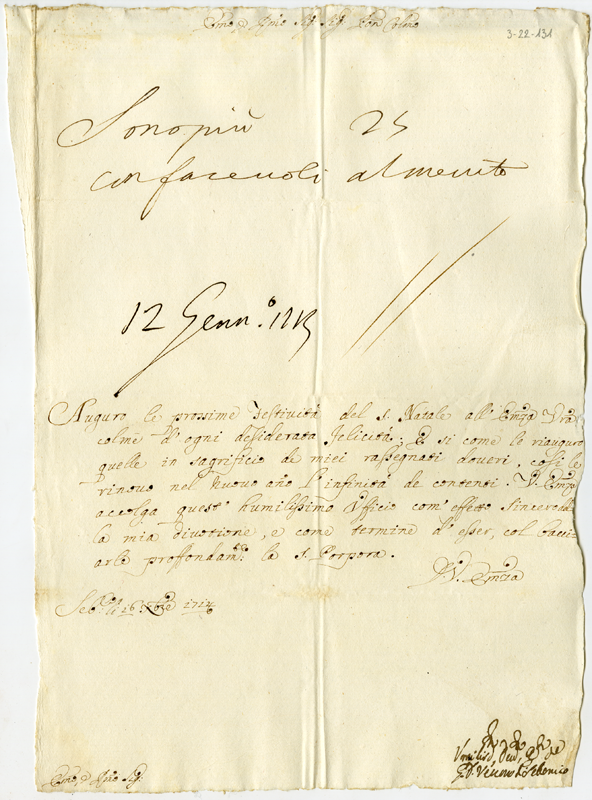 Emo, e Rmo Sig. Sig. Pron Colmo
3-22-131
Sono più 25
confacevoli al merito
12 Genn.o 1713
Auguro le prossime Festività del S. Natale all' Emza Vra
colme d' ogni desiderata felicità; E si come le riauguro
quelle in sagrificio de miei rassegnati doveri, così le
rinovo nel Nuovo año l' infinità de contenti. V. Emza
accolga quest' humilissimo Ufficio com' effetto sincero del
la mia divotione, e come termine d' esser, col bacci
arle proffondamte la S. Porpora.
D. V. Emza
li 16: Xbre
Emo, e Rmo Sig.
Umilis.
Vescovo